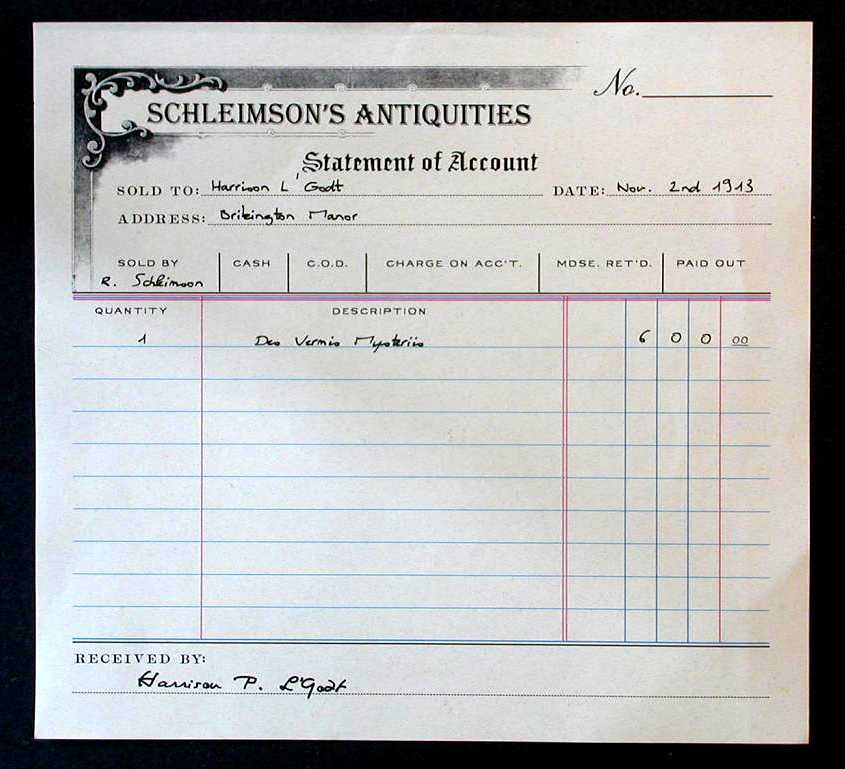 No.
SCHLEIMSON'S ANTIQUITIES
Statement of Account
SOLD TO: Harrison L'Godt DATE: Nov. 2nd 1913
ADDRESS: Brikington Manor
SOLD BY CASH C.O.D. CHARGE ON ACC'T. MDSE. RET'D. PAID OUT
R. Schleimson
QUANTITY DESCRIPTION
1 Des Vermis Mysteriis 6 0 0 00
RECEIVED BY:
Harrison P. L'Godt